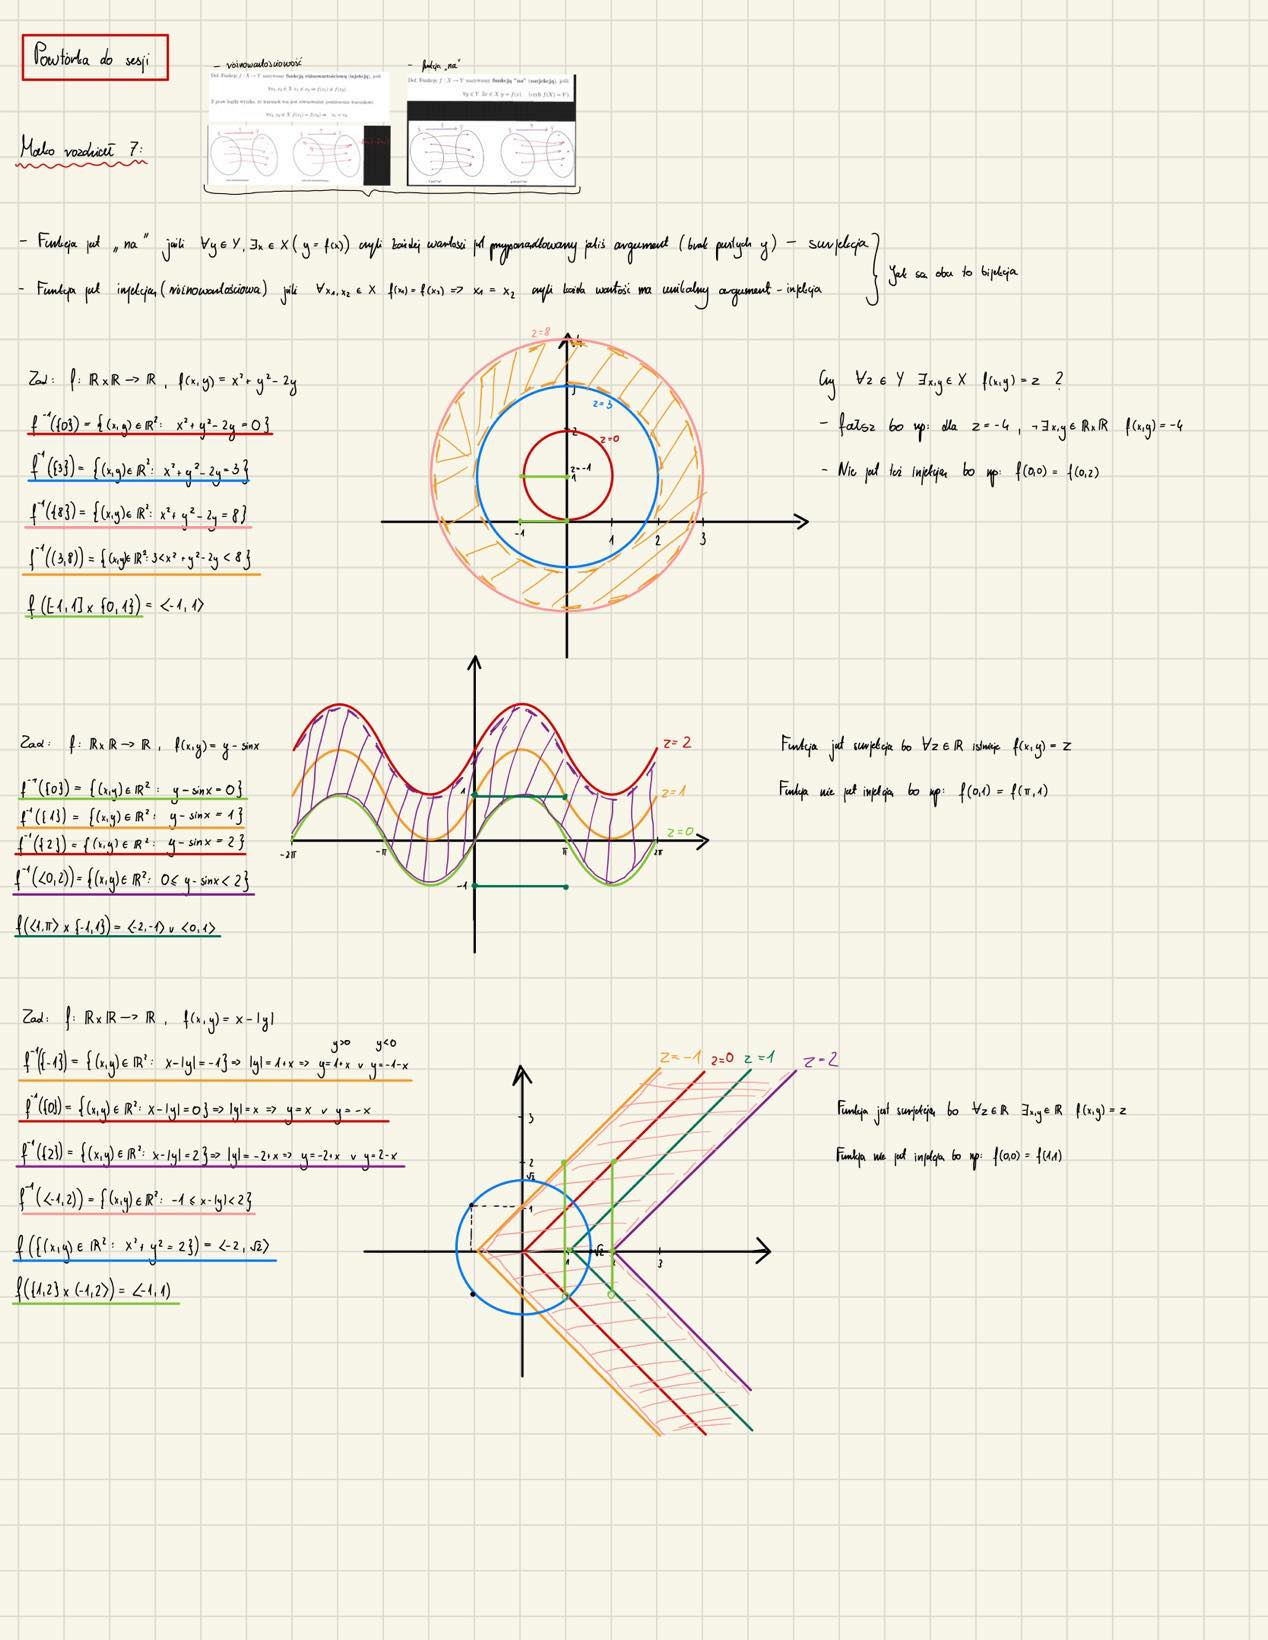 Powtórka do sesji
- różnowartościowość
- funkcja „na"
Def. Funkcję f : X → Y nazywamy funkcją różnowartościową (injekcją), jeśli
∀x₁, x₂ ∈ X x₁ ≠ x₂ ⇒ f(x₁) ≠ f(x₂).
∀x₁, x₂ ∈ X f(x₁) = f(x₂) ⇒ x₁ = x₂
Def. Funkcję f : X → Y nazywamy funkcją "na" (surjekcją), jeśli
∀y ∈ Y ∃x ∈ X y = f(x). (czyli f(X) = Y).
rozdział 7:
- Funkcja jest „na" jeśli ∀y ∈ Y, ∃x ∈ X (y = f(x)) czyli każdej wartości jest przyporządkowany jakiś argument (brak pustych y) - surjekcja
- Funkcja jest injekcją (różnowartościowa) jeśli ∀x₁,x₂ ∈ X f(x₁) = f(x₂) => x₁ = x₂ czyli każda wartość ma unikalny argument - injekcja
Jak są oba to bijekcja
Zad: f: ℝxℝ → ℝ , f(x,y) = x² + y² - 2y
f⁻¹({0}) = {(x,y) ∈ ℝ²: x² + y² - 2y = 0}
f⁻¹({3}) = {(x,y) ∈ ℝ²: x² + y² - 2y = 3}
f⁻¹({8}) = {(x,y) ∈ ℝ²: x² + y² - 2y = 8}
f⁻¹((3,8)) = {(x,y) ∈ ℝ²: 3 < x² + y² - 2y < 8}
f([-1,1] x {0,1}) = <-1,1>
z=8
3
z=3
2
z=0
z=-1
1
-1 1 2 3
Czy ∀z ∈ Y ∃x,y ∈ X f(x,y) = z ?
- fałsz bo np: dla z = -4 , ¬∃x,y ∈ ℝxℝ f(x,y) = -4
- Nie jest też injekcją bo np: f(0,0) = f(0,2)
Zad: f: ℝxℝ → ℝ , f(x,y) = y - sinx
f⁻¹({0}) = {(x,y) ∈ ℝ²: y - sinx = 0}
f⁻¹({1}) = {(x,y) ∈ ℝ²: y - sinx = 1}
f⁻¹({2}) = {(x,y) ∈ ℝ²: y - sinx = 2}
f⁻¹(<0,2)) = {(x,y) ∈ ℝ²: 0 ≤ y - sinx < 2}
f(<1,π> x {-1,1}) = <-2,-1> ∪ <0,1>
z=2
z=1
z=0
1
-2π -π π 2π
-1
Funkcja jest surjekcją bo ∀z ∈ ℝ istnieje f(x,y) = z
Funkcja nie jest injekcją bo np: f(0,1) = f(π,1)
Zad: f: ℝxℝ → ℝ , f(x,y) = x - |y|
y>0 y<0
f⁻¹({-1}) = {(x,y) ∈ ℝ²: x-|y| = -1} => |y| = 1+x => y = 1+x ∨ y = -1-x
f⁻¹({0}) = {(x,y) ∈ ℝ²: x-|y| = 0} => |y| = x => y = x ∨ y = -x
f⁻¹({2}) = {(x,y) ∈ ℝ²: x-|y| = 2} => |y| = -2+x => y = -2+x ∨ y = 2-x
f⁻¹(<-1,2)) = {(x,y) ∈ ℝ²: -1 ≤ x-|y| < 2}
f({(x,y) ∈ ℝ²: x² + y² = 2}) = <-2,√2>
f({1,2} x (-1,2>) = <-1,1)
z=-1 z=0 z=1 z=2
3
2
√2
1
1 √2 2 3
Funkcja jest surjekcją bo ∀z ∈ ℝ ∃x,y ∈ ℝ f(x,y) = z
Funkcja nie jest injekcją bo np: f(0,0) = f(1,1)